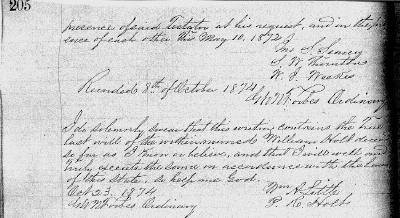 205
presence of said Testator at his request, and in the pre
sence of each other this May 10, 1872
Jno S. Seney
S. W. Thornton
W. F. Weekes
Recorded 8th of October 1874
Ordinary
I do solemnly swear that this writing contains the True
last will of the within named William Holt decd
so far as I know or believe, and that I will well and
truly execute the same in accordance with the laws
of this State. So help me God.
Oct 23, 1874
Wm A Holt
Ordinary
P. R. Holt